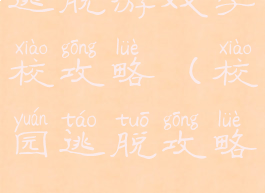 逃脱游戏学
xiào gōng lüè xiào
校攻略（校
yuán táo tuō gōng lüè
园逃脱攻略